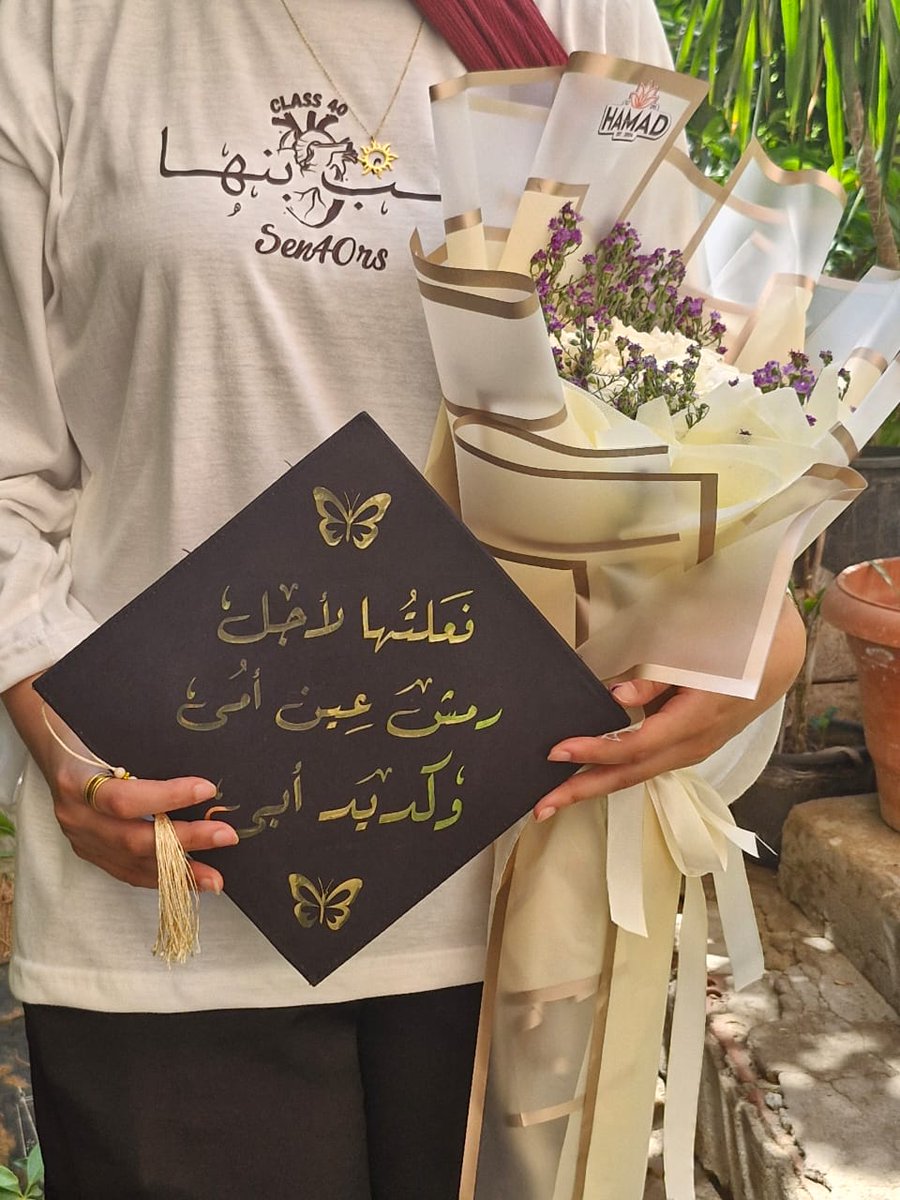 CLASS 40
طب بنها
Sen4Ors
HAMAD
فَعَلتُها لأجل
رمش عِين أمُي
وكديَد أبي